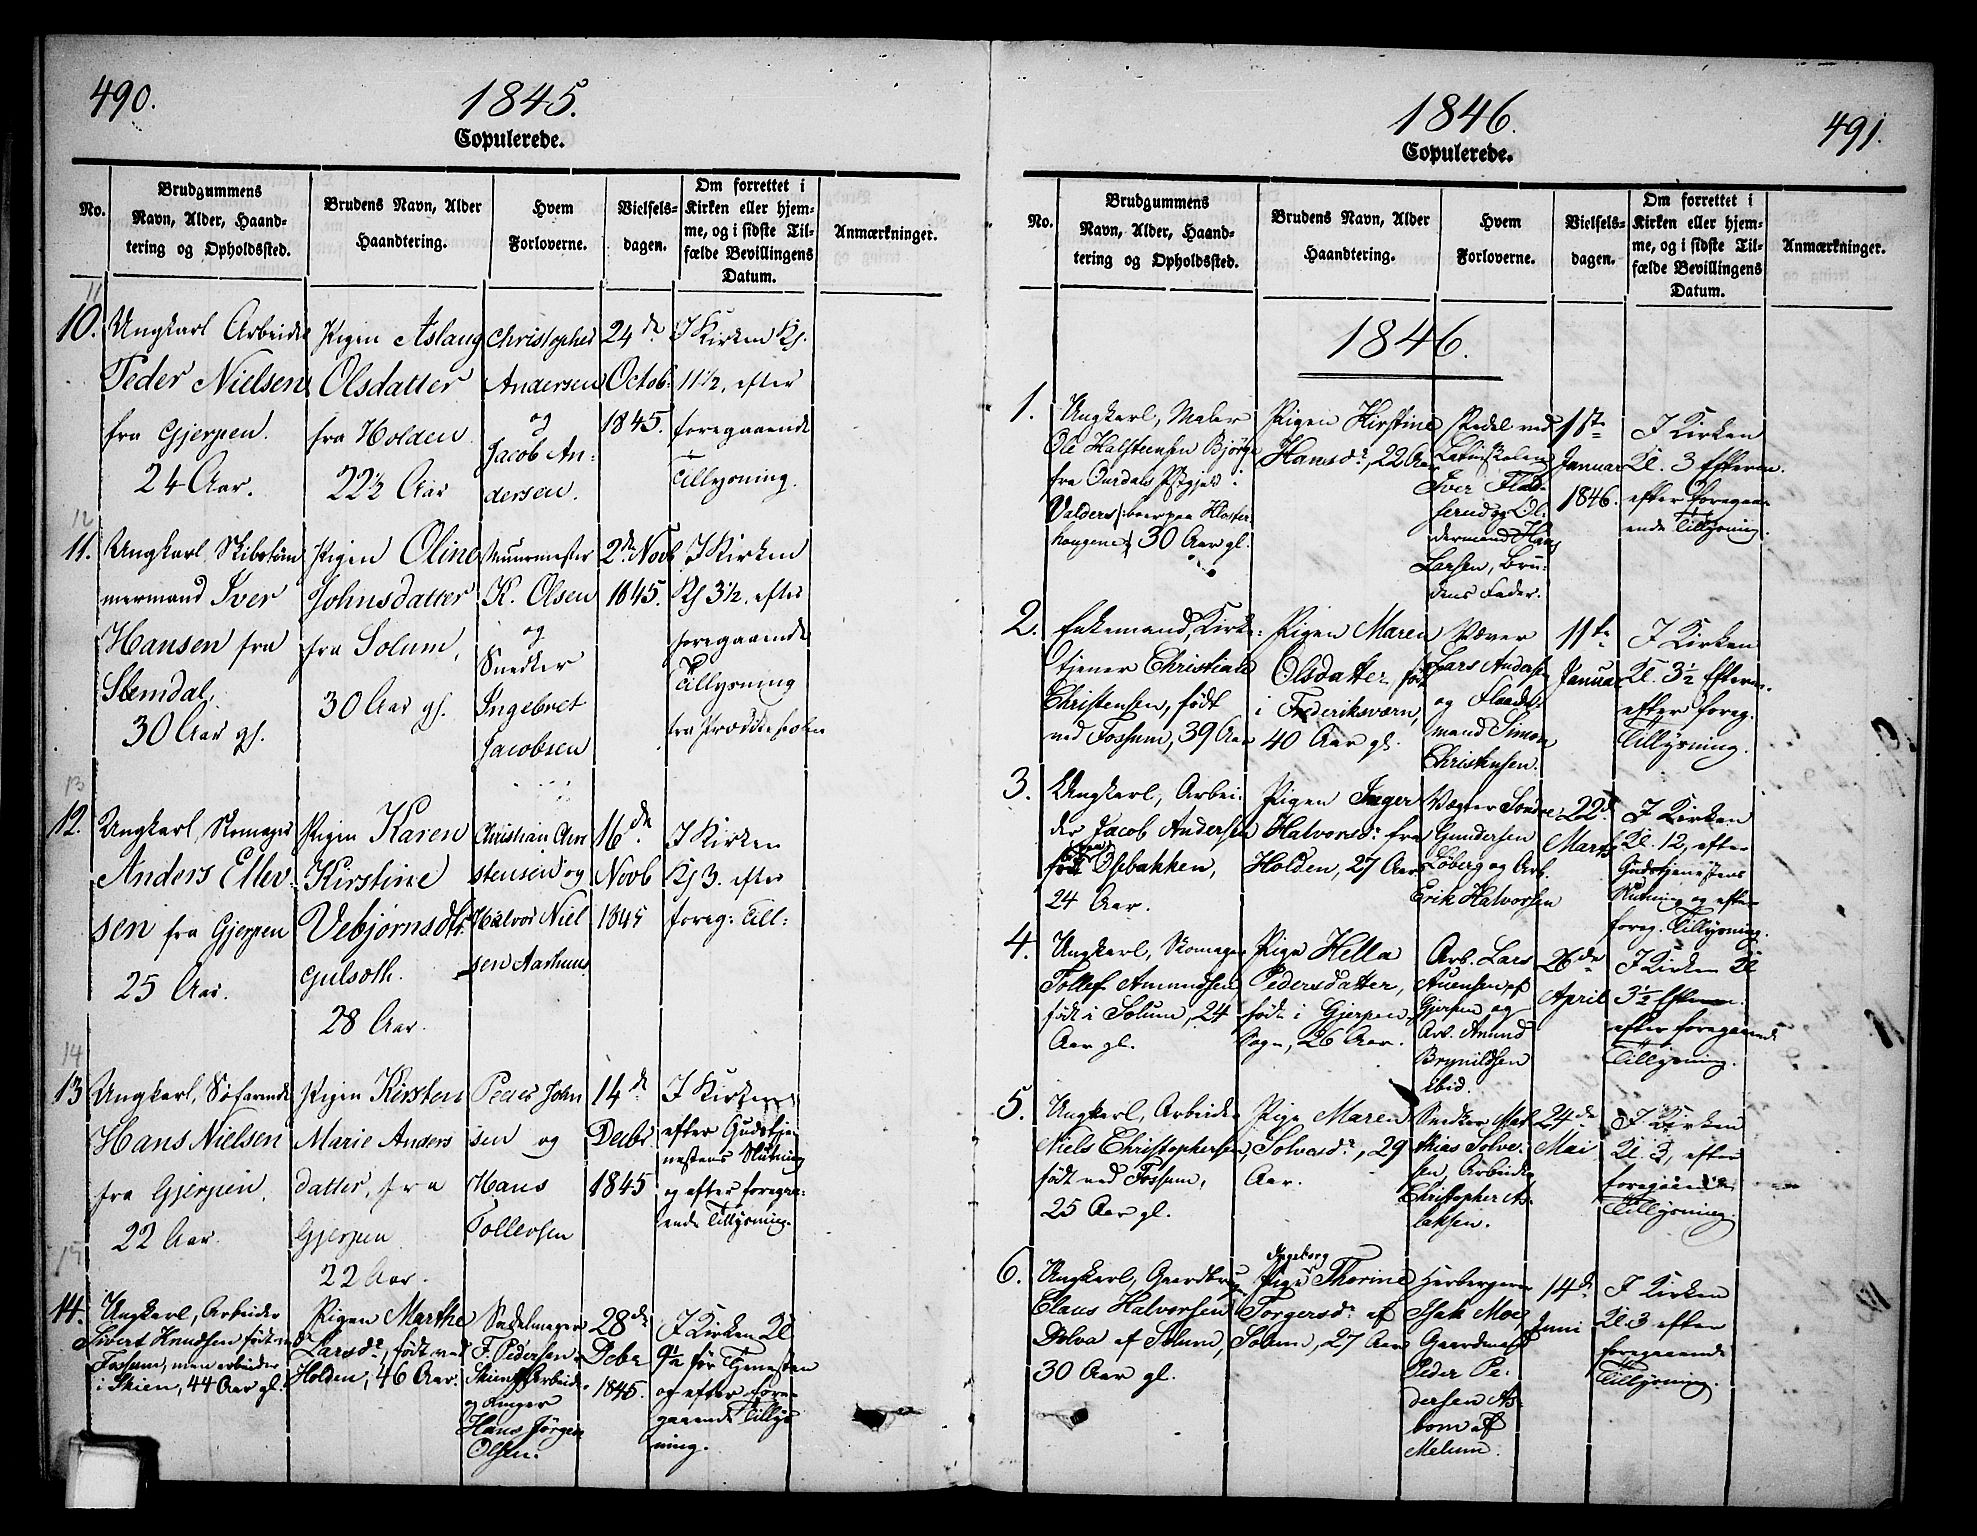 490.
1845.
Copulerede.
No.
Brudgummens
Navn, Alder, Haand-
tering og Opholdssted.
Brudens Navn, Alder
Haandtering.
Hvem
Forloverne.
Vielsels-
dagen.
Om forrettet i
Kirken eller hjem-
me, og i sidste Til-
fælde Bevillingens
Datum.
Anmærkninger.
11
10.
Ungkarl Arbeider
Peder Nielsen
fra Gjerpen.
24 Aar.
Pigen Aslaug
Olsdatter
fra Holden
22½ Aar
Christopher
Andersen
og
Jacob An-
dersen.
24de
Octob.
1845.
I Kirken Kl.
11½, efter
foregaaende
Tillysning.
12
11.
Ungkarl Skibstøm
mermand Iver
Hansen fra
Slemdal,
30 Aar gl.
Pigen Oline
Johnsdatter
fra Solum,
30 Aar gl.
Muurmester
K. Olsen
og
Snedker
Ingebret
Jacobsen
2den Novb
1845.
I Kirken
Kl 3½, efter
foregaaende
Tillysning
fra Prædikestolen
13
12.
Ungkarl, Skomager
Anders Ellev
sen fra Gjerpen
25 Aar.
Pigen Karen
Kirstine
Vebjørnsdtr
Gulseth.
28 Aar.
Christian Chri
stensen og
Halvor Niel
sen Aarhuus
16de
Novb
1845
I Kirken
Kl 3. efter
foreg: Till:
14
13
Ungkarl, Søfarende
Hans Nielsen
fra Gjerpen,
22 Aar.
Pigen Kirsten
Marie Anders
datter, fra
Gjerpen
22 Aar.
Peder John
sen og
Hans
Tollevsen
14de
Decbr
1845
I Kirken
efter Gudstje
nestens Slutning
og efter foregaa-
ende Tillysning.
15
14.
Ungkarl, Arbeider
Sivert Knudsen født ved
Fossum, men arbeider
i Skien, 44 Aar gl.
Pigen Marthe
Larsdr, født ved
Holden, 46 Aar.
Sadelmager
F. Pedersen
Skien, Arbeider
og Ringer
Hans Jørgen
Olsen.
28de
Debr
1845.
I Kirken Kl
9½ før Tjenesten
og efter fore-
gaaende Tillys
ning.
1846.
491.
Copulerede.
No.
Brudgummens
Navn, Alder, Haand-
tering og Opholdssted.
Brudens Navn, Alder
Haandtering.
Hvem
Forloverne.
Vielsels-
dagen.
Om forrettet i
Kirken eller hjem-
me, og i sidste Til-
fælde Bevillingens
Datum.
Anmærkninger.
1846.
1.
Ungkarl, Maler
Ole Halsteensen Bjørge
fra Ourdals Pstgjeld i
Valders, boer paa Kloster-
haugene, 30 Aar gl.
Pigen Kirstine
Hansdr, 22 Aar
Pedel ved
Latinskolen
Iver Flad-
serud og Ol-
dermand Hans
Larsen, Bru-
dens Fader.
1ste
Januar
1846.
I Kirken
Kl. 3 Efterm.
efter foregaa-
ende Tillysning.
2.
Enkemand, Kirke-
tjener Christian
Christensen, født
ved Fossum, 39 Aar
Pigen Maren
Olsdatter født
i Frederiksværn,
40 Aar gl.
Væver
Lars Andersen
og
mand Simon
Christensen.
11te
Januar
I Kirken
Kl. 3½ Efterm.
efter foreg.
Tillysning.
3.
Ungkarl, Arbei-
der Jacob Andersen
født Osebakken,
24 Aar.
Pigen Inger
Halvorsdr fra
Holden, 27 Aar
Vægter Sondre
Gundersen
Løberg og Arb.
Erik Halvorsen
22de
Marts
I Kirken
Kl. 12, efter
Gudstjenestens
Slutning og efter
foreg. Tillysning.
4.
Ungkarl, Skomager
Tollef Amundsen
født i Solum, 24
Aar gl.
Pige Hella
Pedersdatter,
født i Gjerpen
Sogn, 26 Aar.
Arb. Lars
Auensen af
Gjerpen og
Arb. Amund
Brynildsen
ibid.
26de
April
I Kirken Kl
3½ Efterm.
efter foregaaende
Tillysning.
5.
Ungkarl, Arbeider
Niels Christophersen,
født ved Fossum,
25 Aar gl.
Pige Maren
Solvesdr, 29
Aar.
Snedker Mat
thias Solve-
sen, Arbeider
Christopher As-
laksen.
24de
Mai
I Kirken
Kl. 3, efter
foregaaende
Tillysning.
6.
Ungkarl, Gaardbru
Claus Halvorsen
Dolva af Solum,
30 Aar gl.
Ingeborg
Pige Thorine
Torgersdr af
Solum, 27 Aar
Herbergerer
Isak Moe
Gaardmand
Peder Pe-
dersen As-
bom af
Melum.
14de
Juni
I Kirken
Kl. 3 efter
foregaaende
Tillysning.